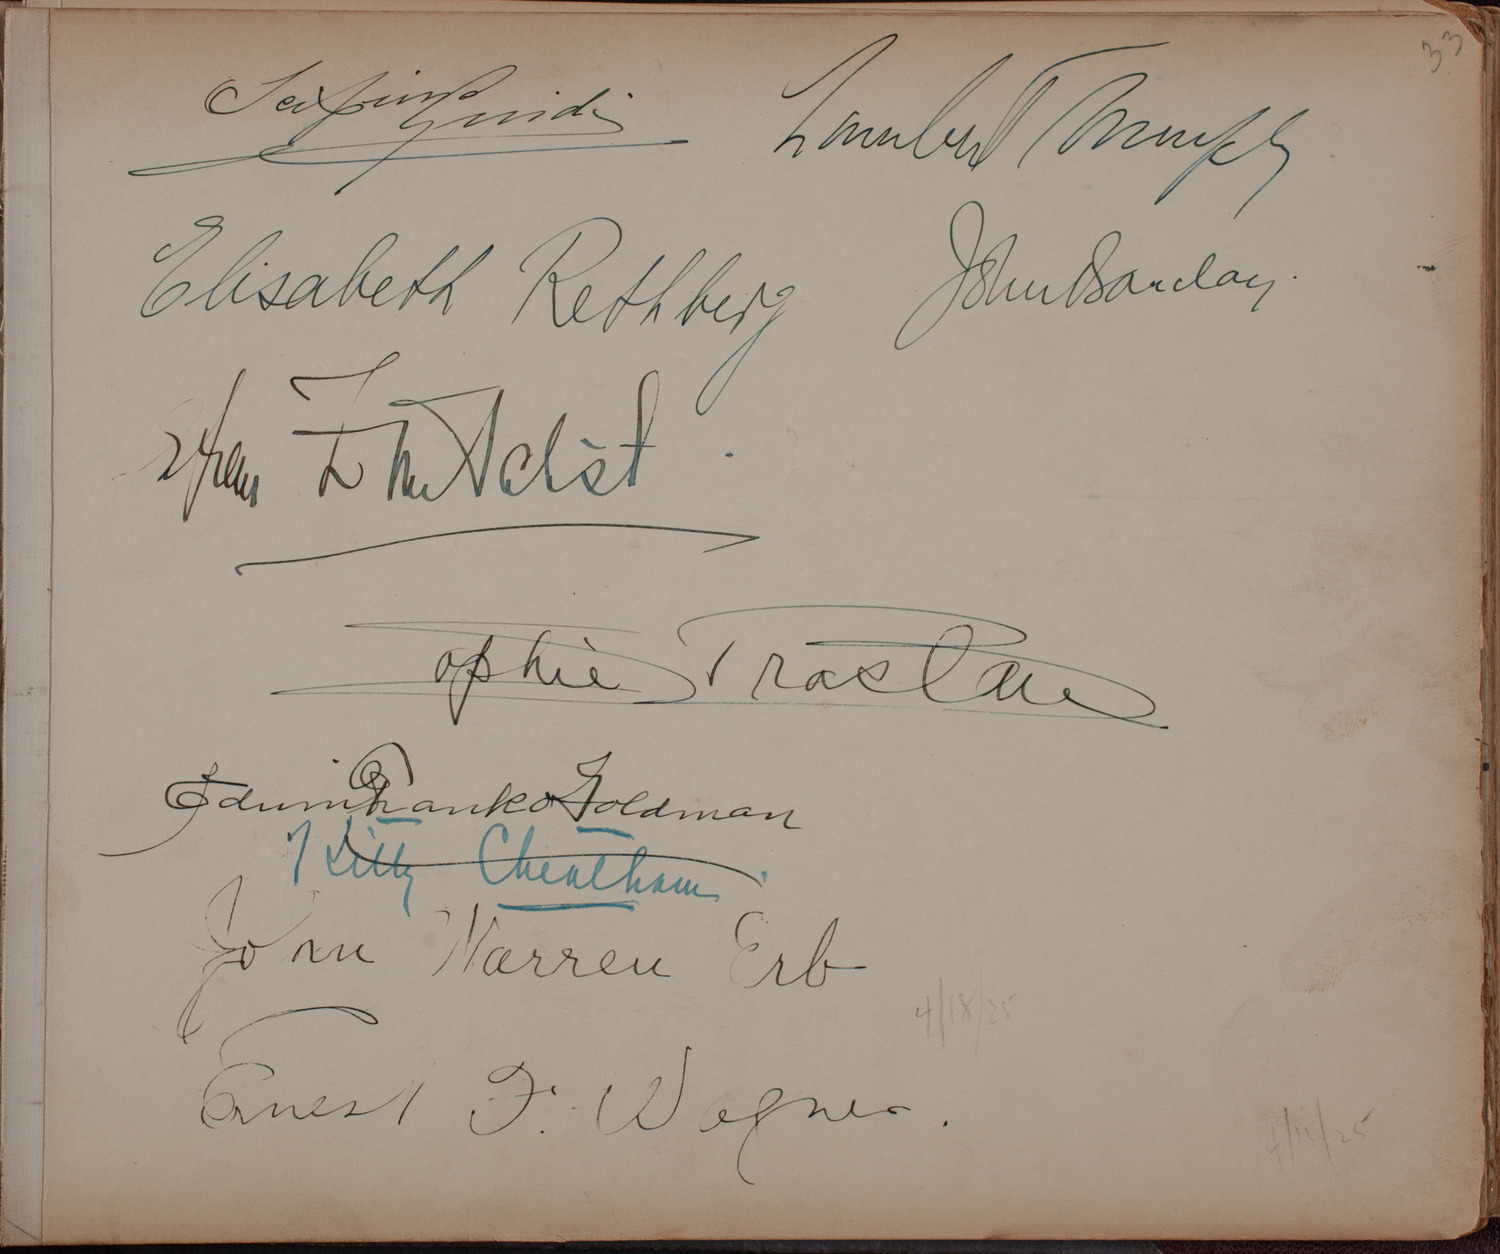 33
Scipione Guidi
Lambert Murphy
Elisabeth Rethberg
John Barclay.
Efrem Zimbalist
Sophie Braslau
Edwin Franko Goldman
Kitty Cheatham
John Warren Erb
4/18/25
Ernest F. Wagner.
4/11/25